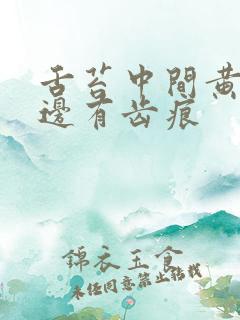 舌苔中間黄
邊有齿痕
錦衣玉食
未经同意禁止转载